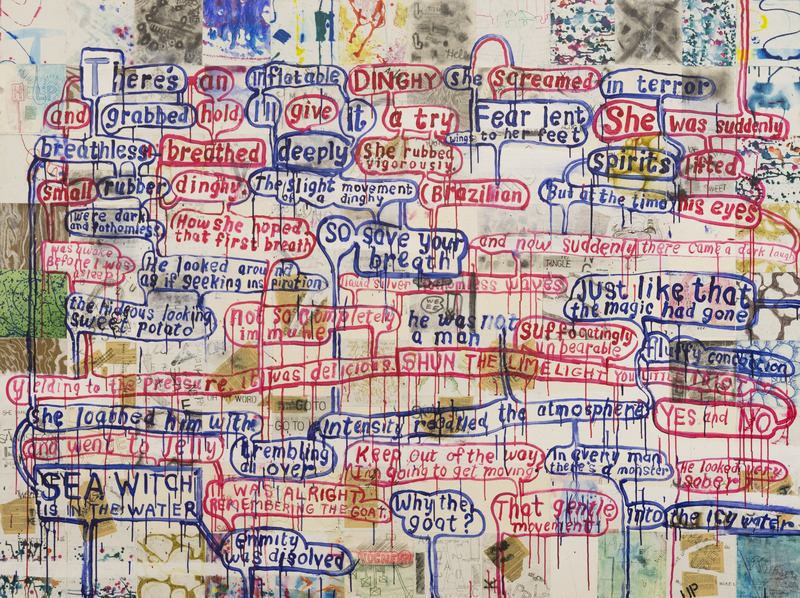 There's an inflatable DINGHY she screamed in terror
and grabbed hold I'll give it a try Fear lent She was suddenly
wings to her feet
breathless breathed deeply She rubbed spirits lifted
vigorously.
small rubber dinghy. The slight movement Brazilian But at the time his eyes
of a dinghy
were dark How she hoped SO save your and now suddenly there came a dark laugh
and fathomless that first breath breath
was awake
Before I was
asleep!
He looked around
as if seeking inspiration
liquid silver waves
Just like that
the magic had gone
the hideous looking not so completely he was not Suffocatingly
sweet potato immune a man unbearable
fluffy concoction
yielding to the pressure, it was delicious. SHUN THE LIMELIGHT YOU IDIOT
she loathed him with intensity the atmosphere YES and NO
and went to jelly trembling Keep out of the way In every man He looked very
all over I'm going to get moving. there's a monster sober
SEA WITCH IT WAS ALRIGHT Why the That gentle into the icy water
IS IN THE WATER REMEMBERING THE GOAT. goat? movement!
Enmity
was disolved
GO TO
GO TO
UP